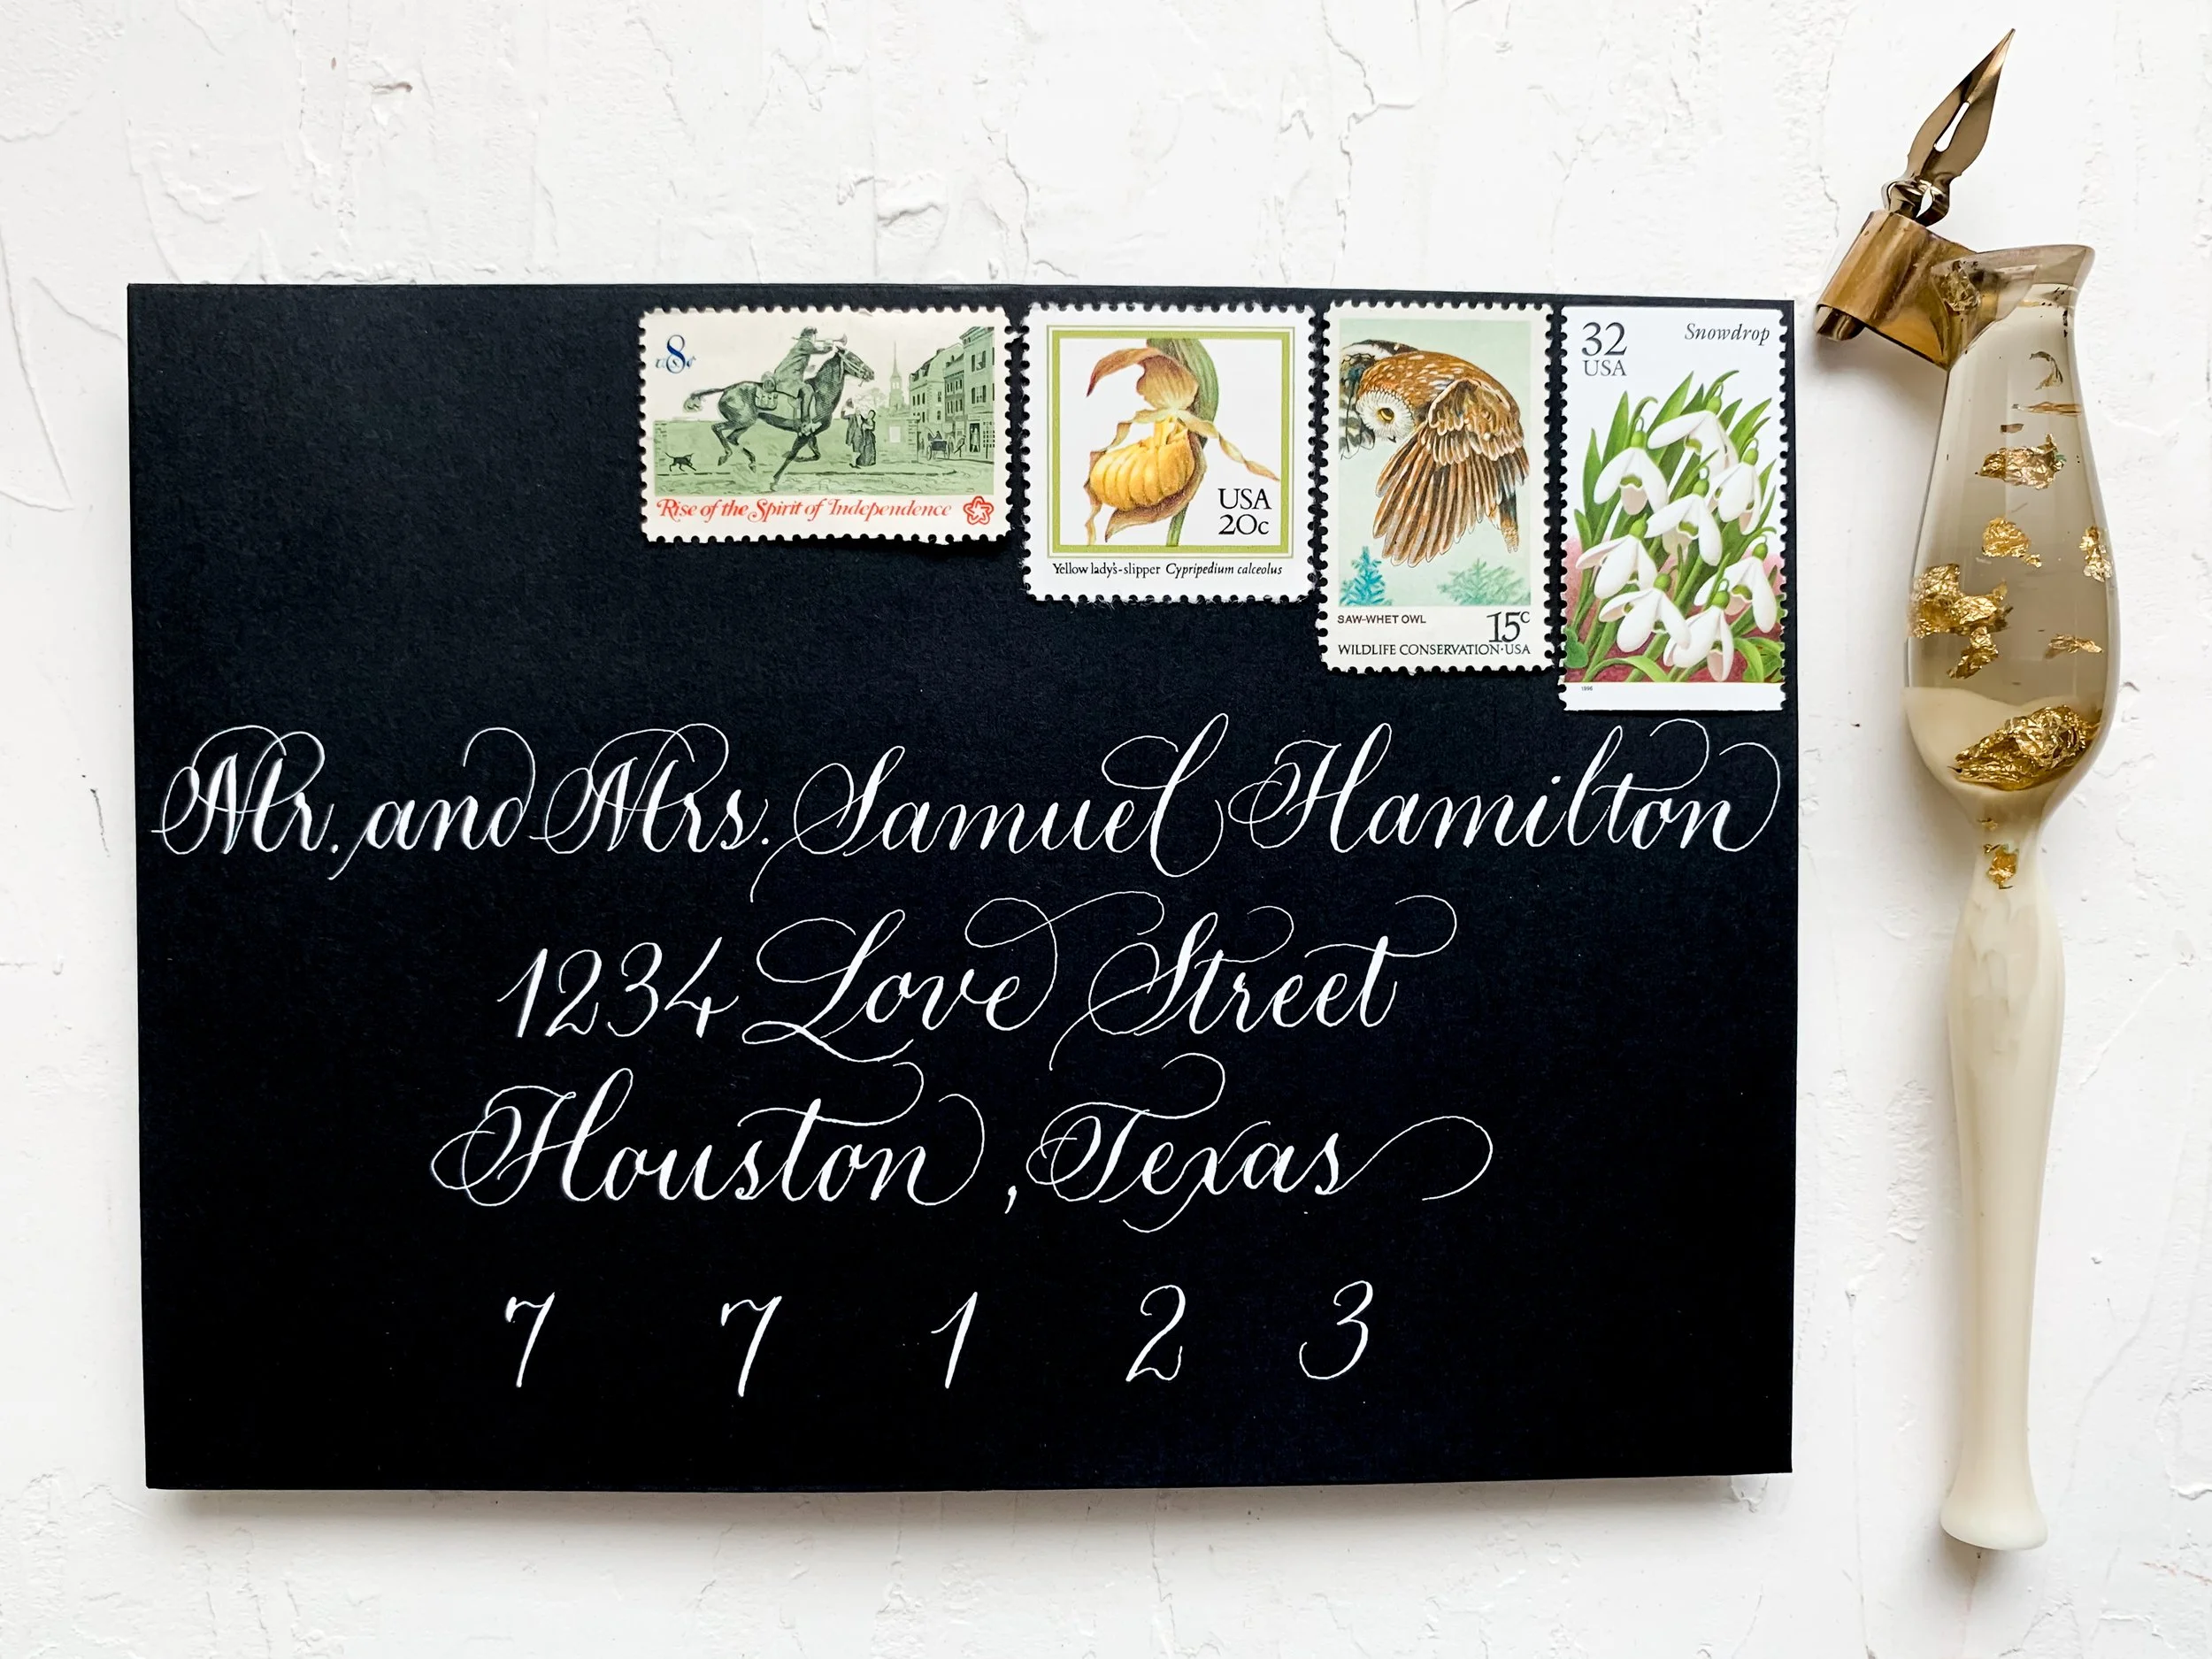 8
U.S. ¢
Rise of the Spirit of Independence
USA
20c
Yellow lady's-slipper Cypripedium calceolus
SAW-WHET OWL
15c
WILDLIFE CONSERVATION·USA
32
USA
Snowdrop
1996
Mr. and Mrs. Samuel Hamilton
1234 Love Street
Houston, Texas
7 7 1 2 3